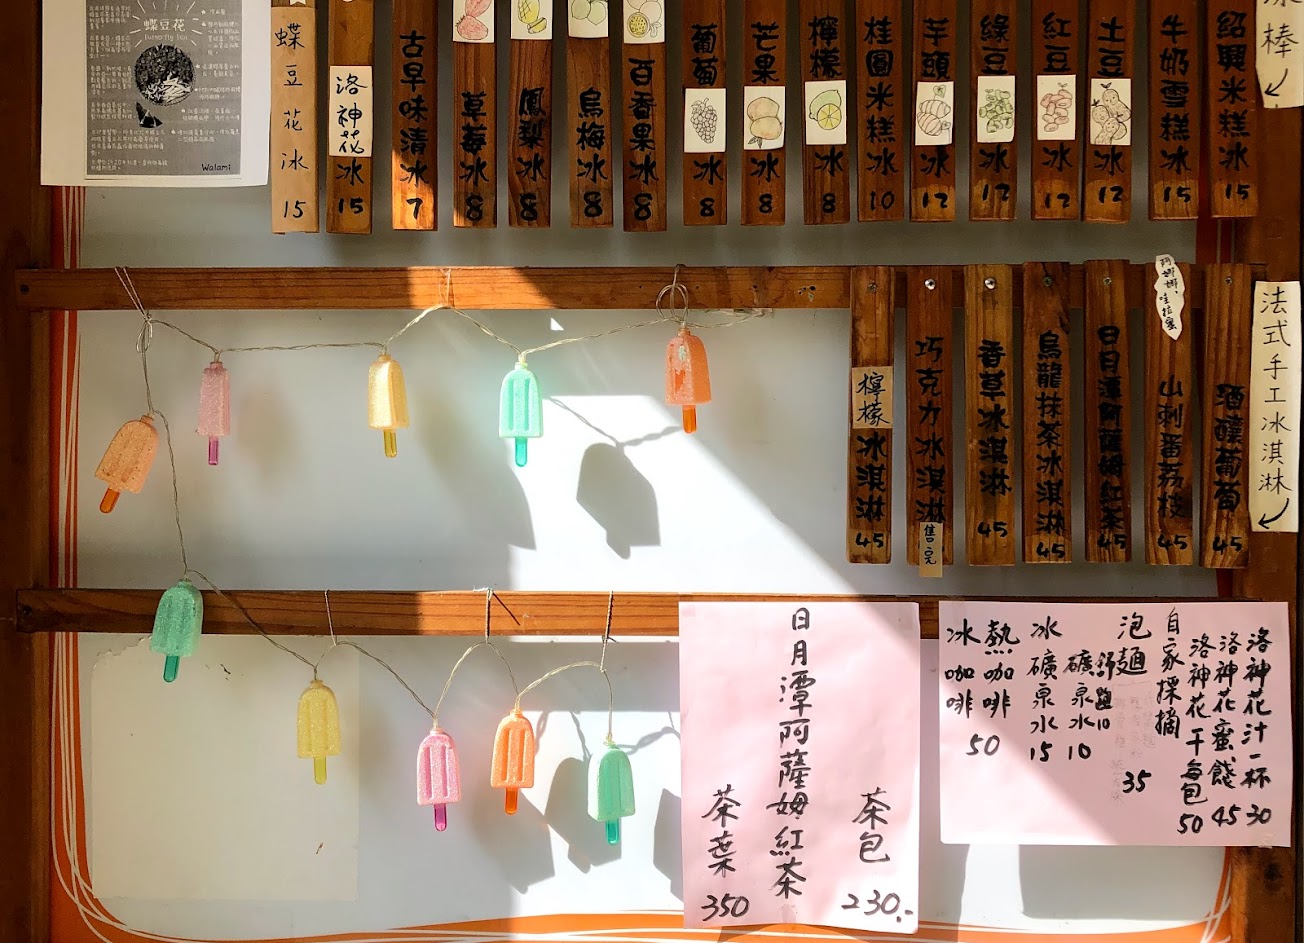 冰棒
紹興米糕冰 15
牛奶雪糕冰 15
土豆冰 12
紅豆冰 12
綠豆冰 12
芋頭冰 12
桂圓米糕冰 10
檸檬冰 8
芒果冰 8
葡萄冰 8
百香果冰 8
烏梅冰 8
鳳梨冰 8
草莓冰 8
古早味清冰 7
洛神花冰 15
蝶豆花冰 15
蝶豆花
butterfly tea
Walami
法式手工冰淇淋
酒釀葡萄 45
山刺番荔枝 45
日月潭阿薩姆紅茶 45
烏龍抹茶冰淇淋 45
香草冰淇淋 45
巧克力冰淇淋
售完
檸檬冰淇淋 45
洛神花汁一杯 30
洛神花蜜餞 45
洛神花干每包 50
自家採摘
泡麵 35
礦泉水 10
冰礦泉水 15
熱咖啡
冰咖啡
50
茶包 230.-
日月潭阿薩姆紅茶
茶葉 350